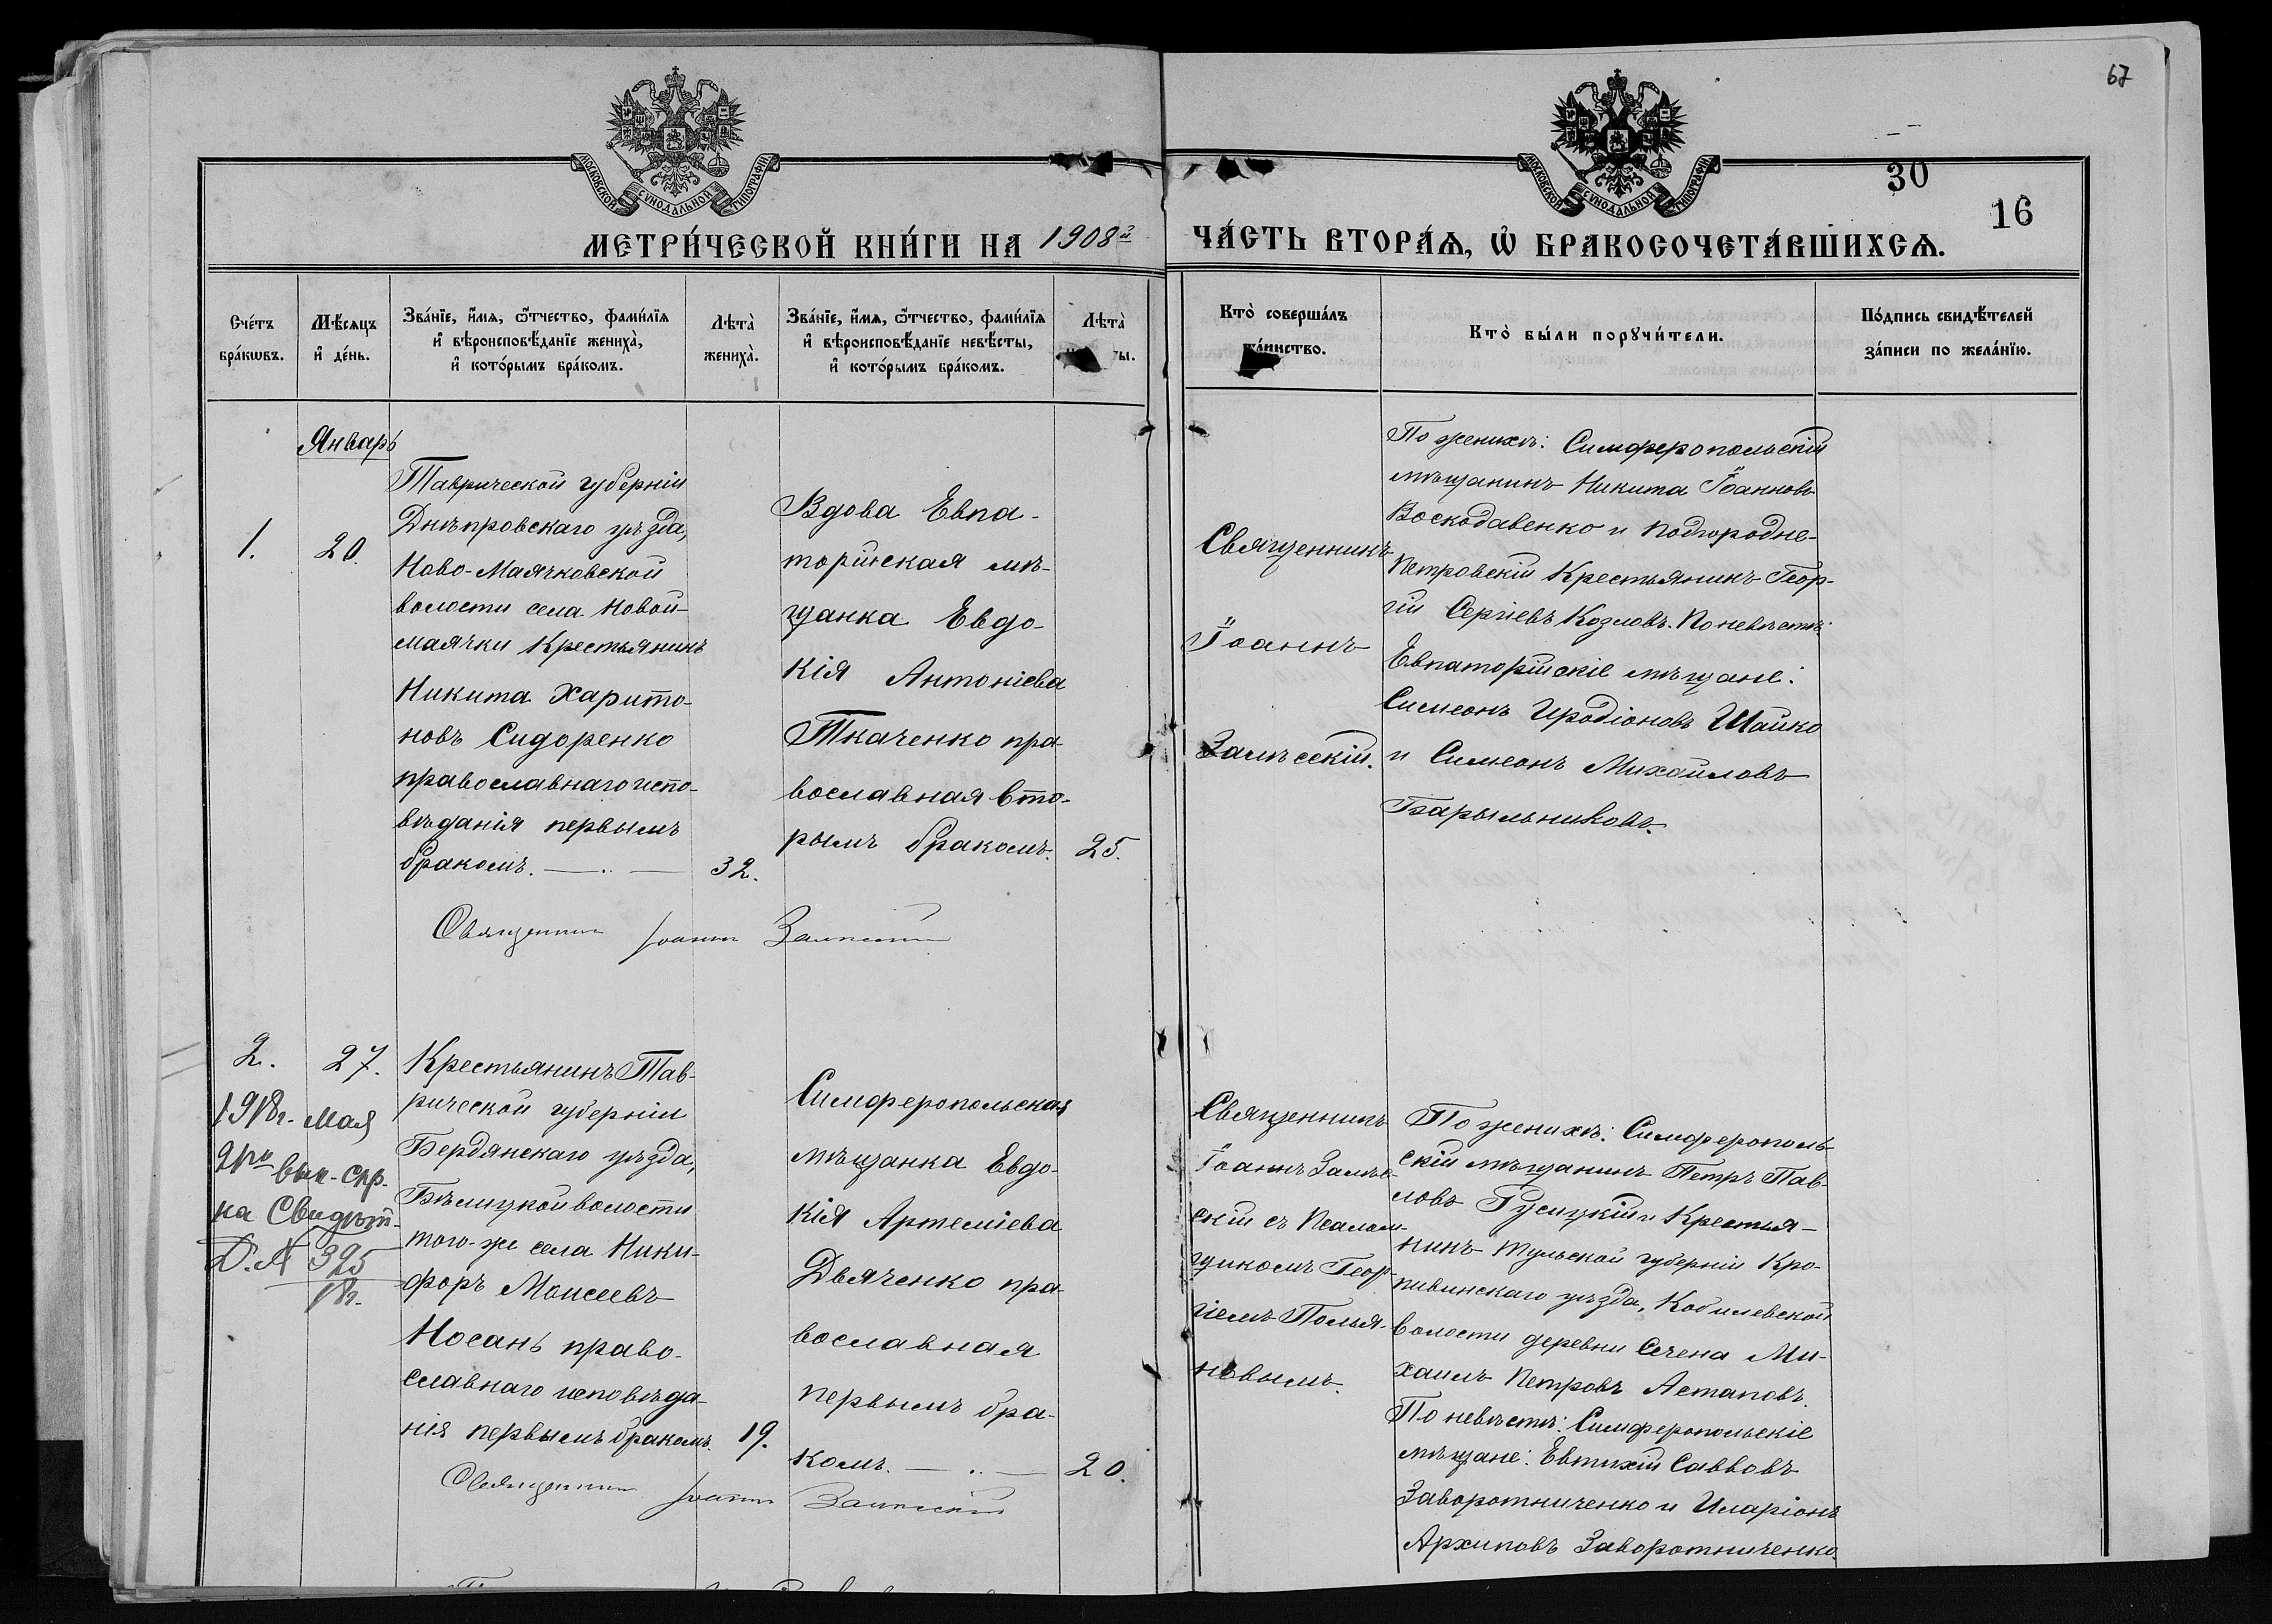 67
МОСКОВСКОЙ СѴНОДАЛЬНОЙ ТИПОГРАФІИ
МОСКОВСКОЙ СѴНОДАЛЬНОЙ ТИПОГРАФІИ
30
16
МЕТРИ́ЧЕСКОЙ КНИ́ГИ НА 1908й
ЧА́СТЬ ВТОРА́Ѧ, Ѡ҆ БРАКОСОЧЕТА́ВШИХСѦ.
Сче́тъ
бра́кѡвъ.
Мѣ́сяцъ
и҆ де́нь.
Зва́нїе, и҆́мѧ, ѻ҆́тчество, фами́лїѧ
и҆ вѣроисповѣ́данїе жениха̀,
и҆ кото́рымъ бра́комъ.
Лѣта̀
жениха̀.
Зва́нїе, и҆́мѧ, ѻ҆́тчество, фами́лїѧ
и҆ вѣроисповѣ́данїе невѣ́сты,
и҆ кото́рымъ бра́комъ.
Лѣта̀
ты.
Кто̀ соверша́лъ
та́инство.
Кто̀ бы́ли порꙋчи́тели.
По́дпись свидѣ́телей
за́писи по жела́нїю.
Январь
1.
20.
Таврической губерніи
Днѣпровскаго уѣзда,
Ново-Маячковской
волости села Новой-
маячки Крестьянинъ
Никита Харито-
новъ Сидоренко
православнаго испо-
вѣданія первымъ
бракомъ.
32.
Вдова Евпа-
торійская мѣ-
щанка Евдо-
кія Антоніева
Ткаченко пра-
вославная вто-
рымъ бракомъ.
25.
Священникъ
Іоаннъ
Замѣсскій.
По женихѣ: Симферопольскій
мѣщанинъ Никита Іоанновъ
Воскодавенко и Подгородне-
Петровскій Крестьянинъ Геор-
гій Сергіевъ Козловъ. По невѣстѣ:
Евпаторійскіе мѣщане:
Симеонъ Иродіоновъ Шайко
и Симеонъ Михайловъ
Барыльниковъ.
Священникъ Іоаннъ
2.
27.
1918г. Мая
2го вып. спр.
на Свидѣт.
Д. № 395
18г.
Крестьянинъ Тав-
рической губерніи
Бердянскаго уѣзда,
Бѣлицкой волости
того-же села Ники-
форъ Моисеевъ
Носань право-
славнаго исповѣда-
нія первымъ бракомъ.
19.
Симферопольская
мѣщанка Евдо-
кія Артеміева
Дьяченко пра-
вославная
первымъ бра-
комъ.
20.
Священникъ
Іоаннъ Замѣс-
скій съ Псалом-
щикомъ Геор-
гіемъ Полья-
новымъ.
По женихѣ: Симферополь-
скій мѣщанинъ Петръ Пав-
ловъ Гусицкій и Крестья-
нинъ Тульской губерніи Кро-
пивинскаго уѣзда, Кобылевской
волости деревни Сечена Ми-
хаилъ Петровъ Астаповъ.
По невѣстѣ: Симферопольскіе
мѣщане: Евтихій Савовъ
Заворотниченко и Иларіонъ
Архиповъ Заворотниченко.
Священникъ Іоаннъ